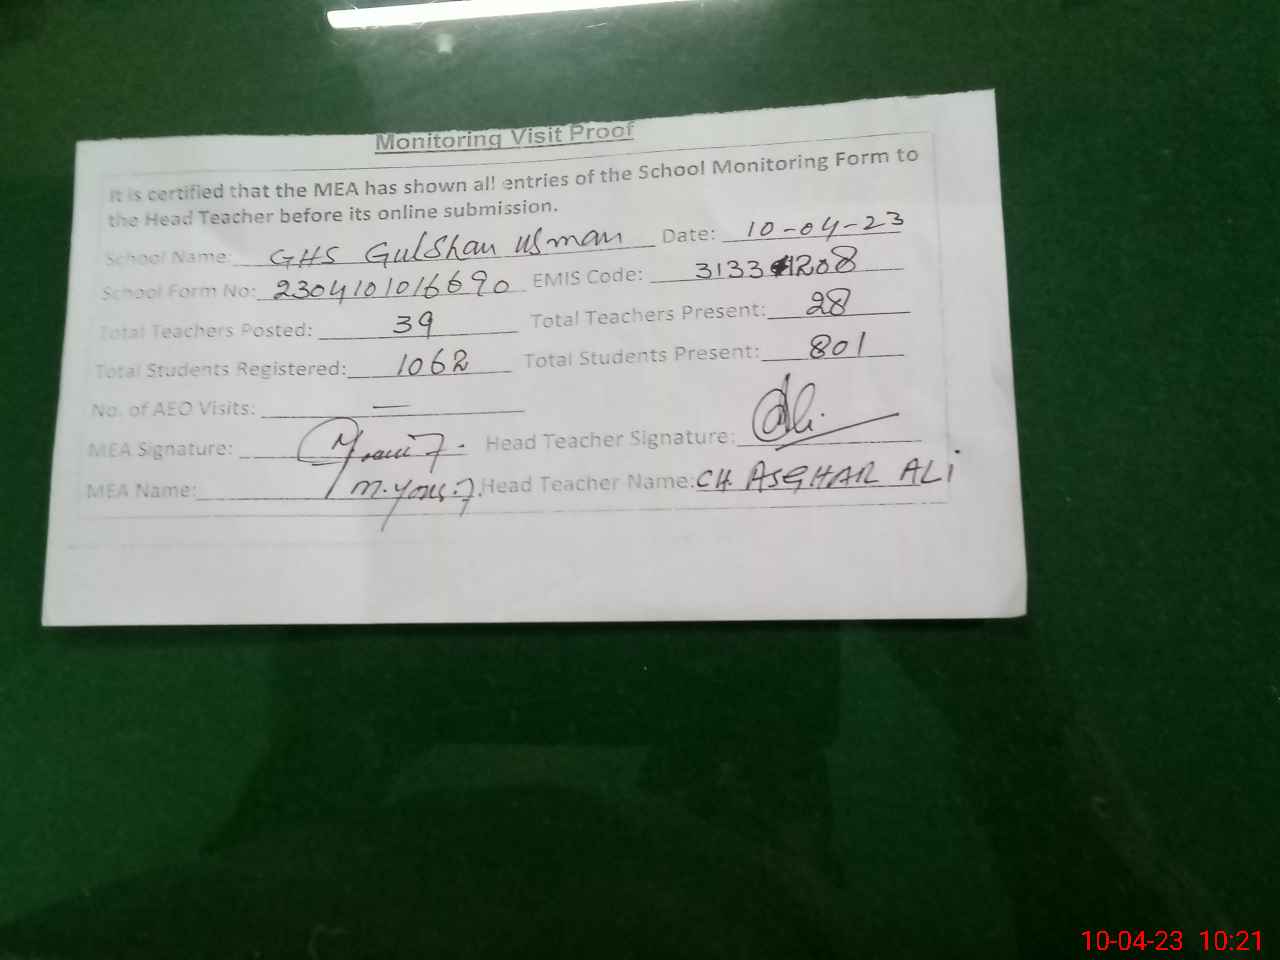 Monitoring Visit Proof
It is certified that the MEA has shown all entries of the School Monitoring Form to
the Head Teacher before its online submission.
School Name: GHS Gulshan Usman Date: 10-04-23
School Form No: 2304101016690 EMIS Code: 31331208
Total Teachers Posted: 39 Total Teachers Present: 28
Total Students Registered: 1062 Total Students Present: 801
No. of AEO Visits: —
MEA Signature: Head Teacher Signature:
MEA Name: Head Teacher Name: CH. ASGHAR ALI
10-04-23 10:21